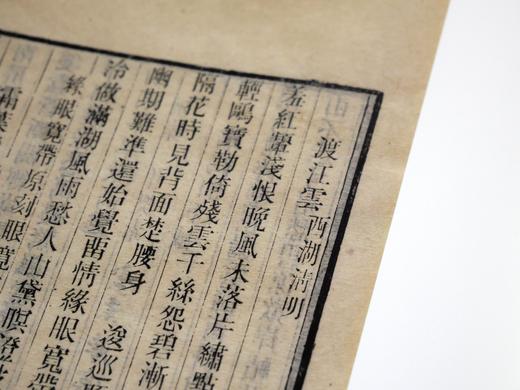 渡江雲 西湖清明
羞紅顰淺恨晚風未落片繡點
輕鷗寶勒倚殘雲千絲怨碧漸
隔花時見背面楚腰身 逡巡
幽期難準還始覺畱情緣眼寬帶
冷做滿湖風雨愁人山黛暝
緣眼寬帶原刻眼寬
霜葉